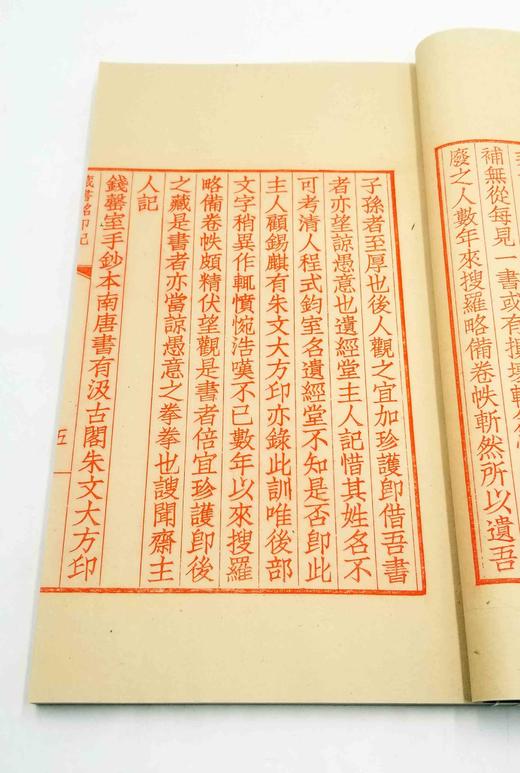 補無從每見一書或有損壞輒
廢之人數年來搜羅略備卷帙斬然所以遺吾
子孫者至厚也後人觀之宜加珍護即借吾書
者亦望諒愚意也遺經堂主人記惜其姓名不
可考清人程式鈞室名遺經堂不知是否即此
主人顧錫麒有朱文大方印亦錄此訓唯後部
文字稍異作輒憤惋浩嘆不已數年以來搜羅
略備卷帙頗精伏望觀是書者倍宜珍護即後
之藏是書者亦當諒愚意之拳拳也謏聞齋主
人記
錢罄室手鈔本南唐書有汲古閣朱文大方印
藏書銘印記
五